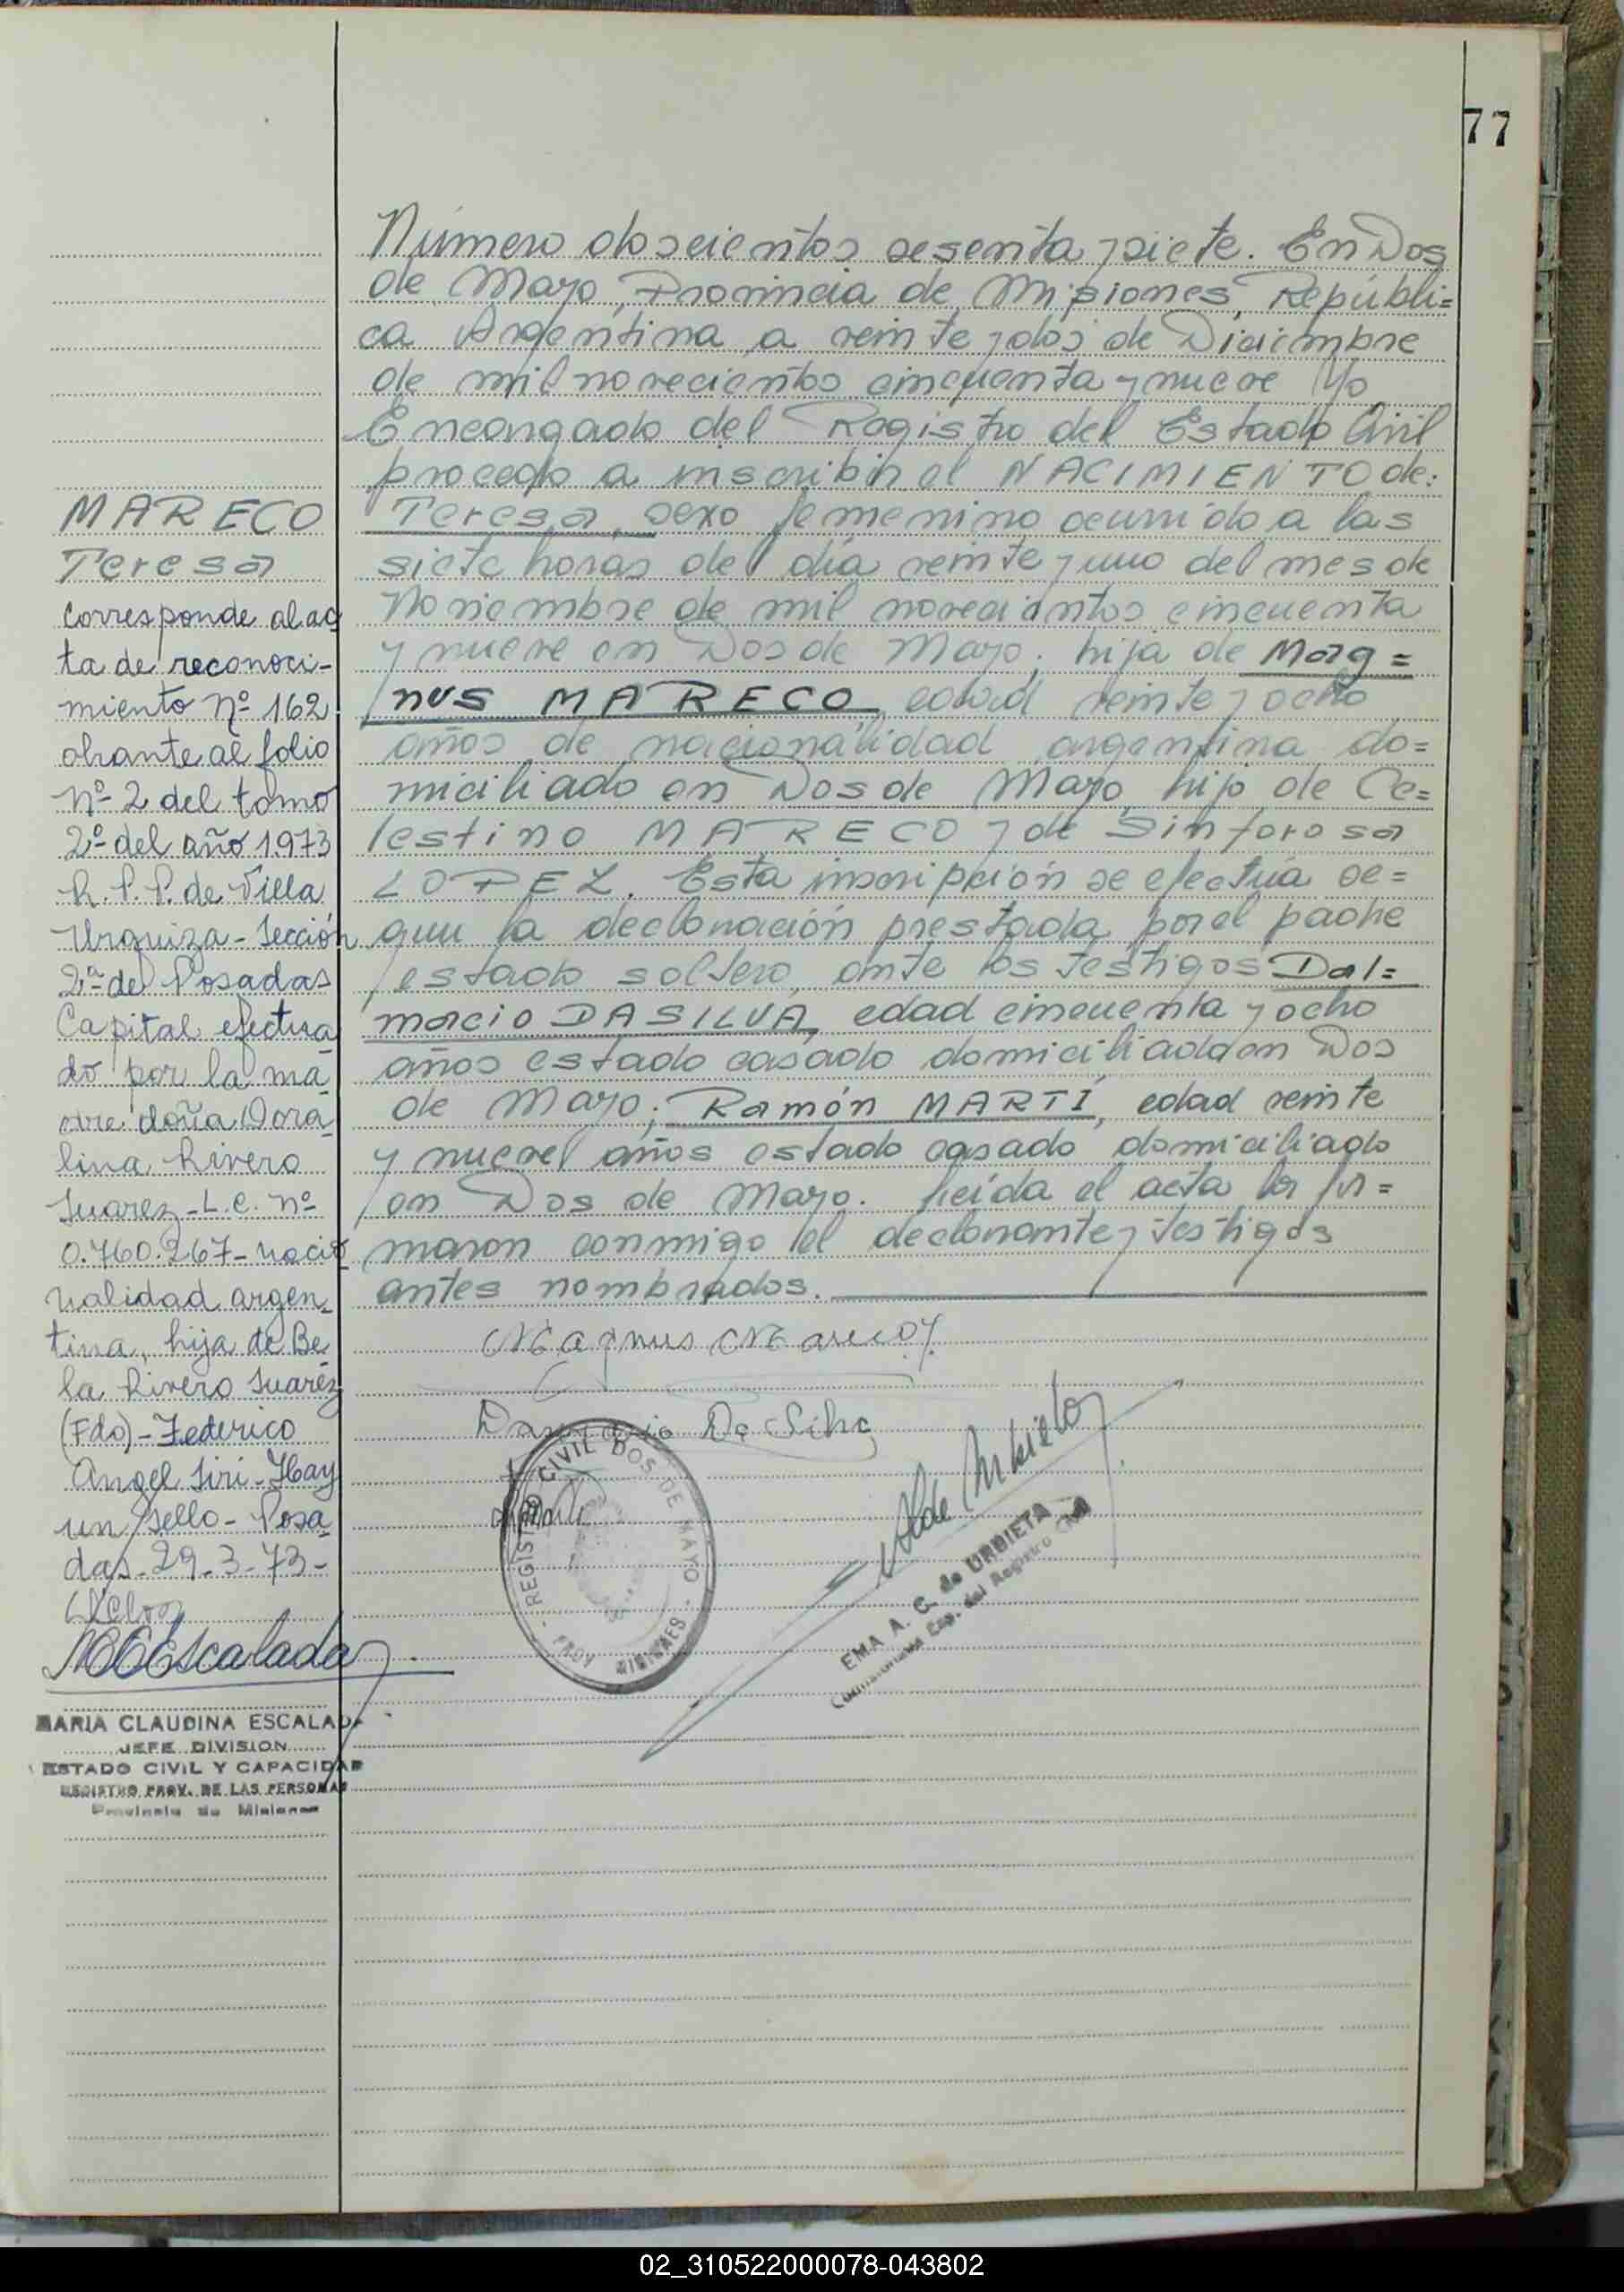 77
Número doscientos sesenta y siete. En Dos
de Mayo, Provincia de Misiones, Repúbli=
ca Argentina a veinte y dos de Diciembre
de mil novecientos cincuenta y nueve Yo,
Encargado del Registro del Estado Civil
procedo a inscribir el NACIMIENTO de:
Teresa, sexo femenino ocurrido a las
siete horas del día veinte y uno del mes de
Noviembre de mil novecientos cincuenta
y nueve en Dos de Mayo; hija de Mag=
nus MARECO, edad veinte y ocho
años de nacionalidad argentina do=
miciliado en Dos de Mayo, hijo de Ce=
lestino MARECO y de Sinforosa
LOPEZ. Esta inscripción se efectúa se=
gun la declaración prestada por el padre
estado soltero, ante los testigos Dal=
macio DASILVA, edad cincuenta y ocho
años estado casado domiciliado en Dos
de Mayo; Ramón MARTÍ, edad veinte
y nueve años estado casado domiciliado
en Dos de Mayo. Leída el acta la fir=
maron conmigo el declarante y testigos
antes nombrados.
Magnus Mareco
Da Silva
REGISTRO CIVIL DOS DE MAYO - MISIONES - PROV.
EMA A. C. de URBIETA
del Registro Civil
MARECO
Teresa
Corresponde al ac
ta de reconoci-
miento Nº 162
obrante al folio
Nº 2 del tomo
2º del año 1973
R. P. P. de Villa
Urquiza - Sección
2ª de Posadas
Capital efectua
do por la ma
dre doña Dora
lina Rivero
Suarez - L.C. Nº
0.760.267 - nacio
nalidad argen-
tina, hija de Be
la Rivero Suarez
(Fdo) - Federico
Angel Siri - Hay
un sello - Posa
das - 29-3-73 -
MCEscalada
MARIA CLAUDINA ESCALADA
JEFE DIVISION
ESTADO CIVIL Y CAPACIDAD
REGISTRO PROV. DE LAS PERSONAS
Provincia de Misiones
02_310522000078-043802